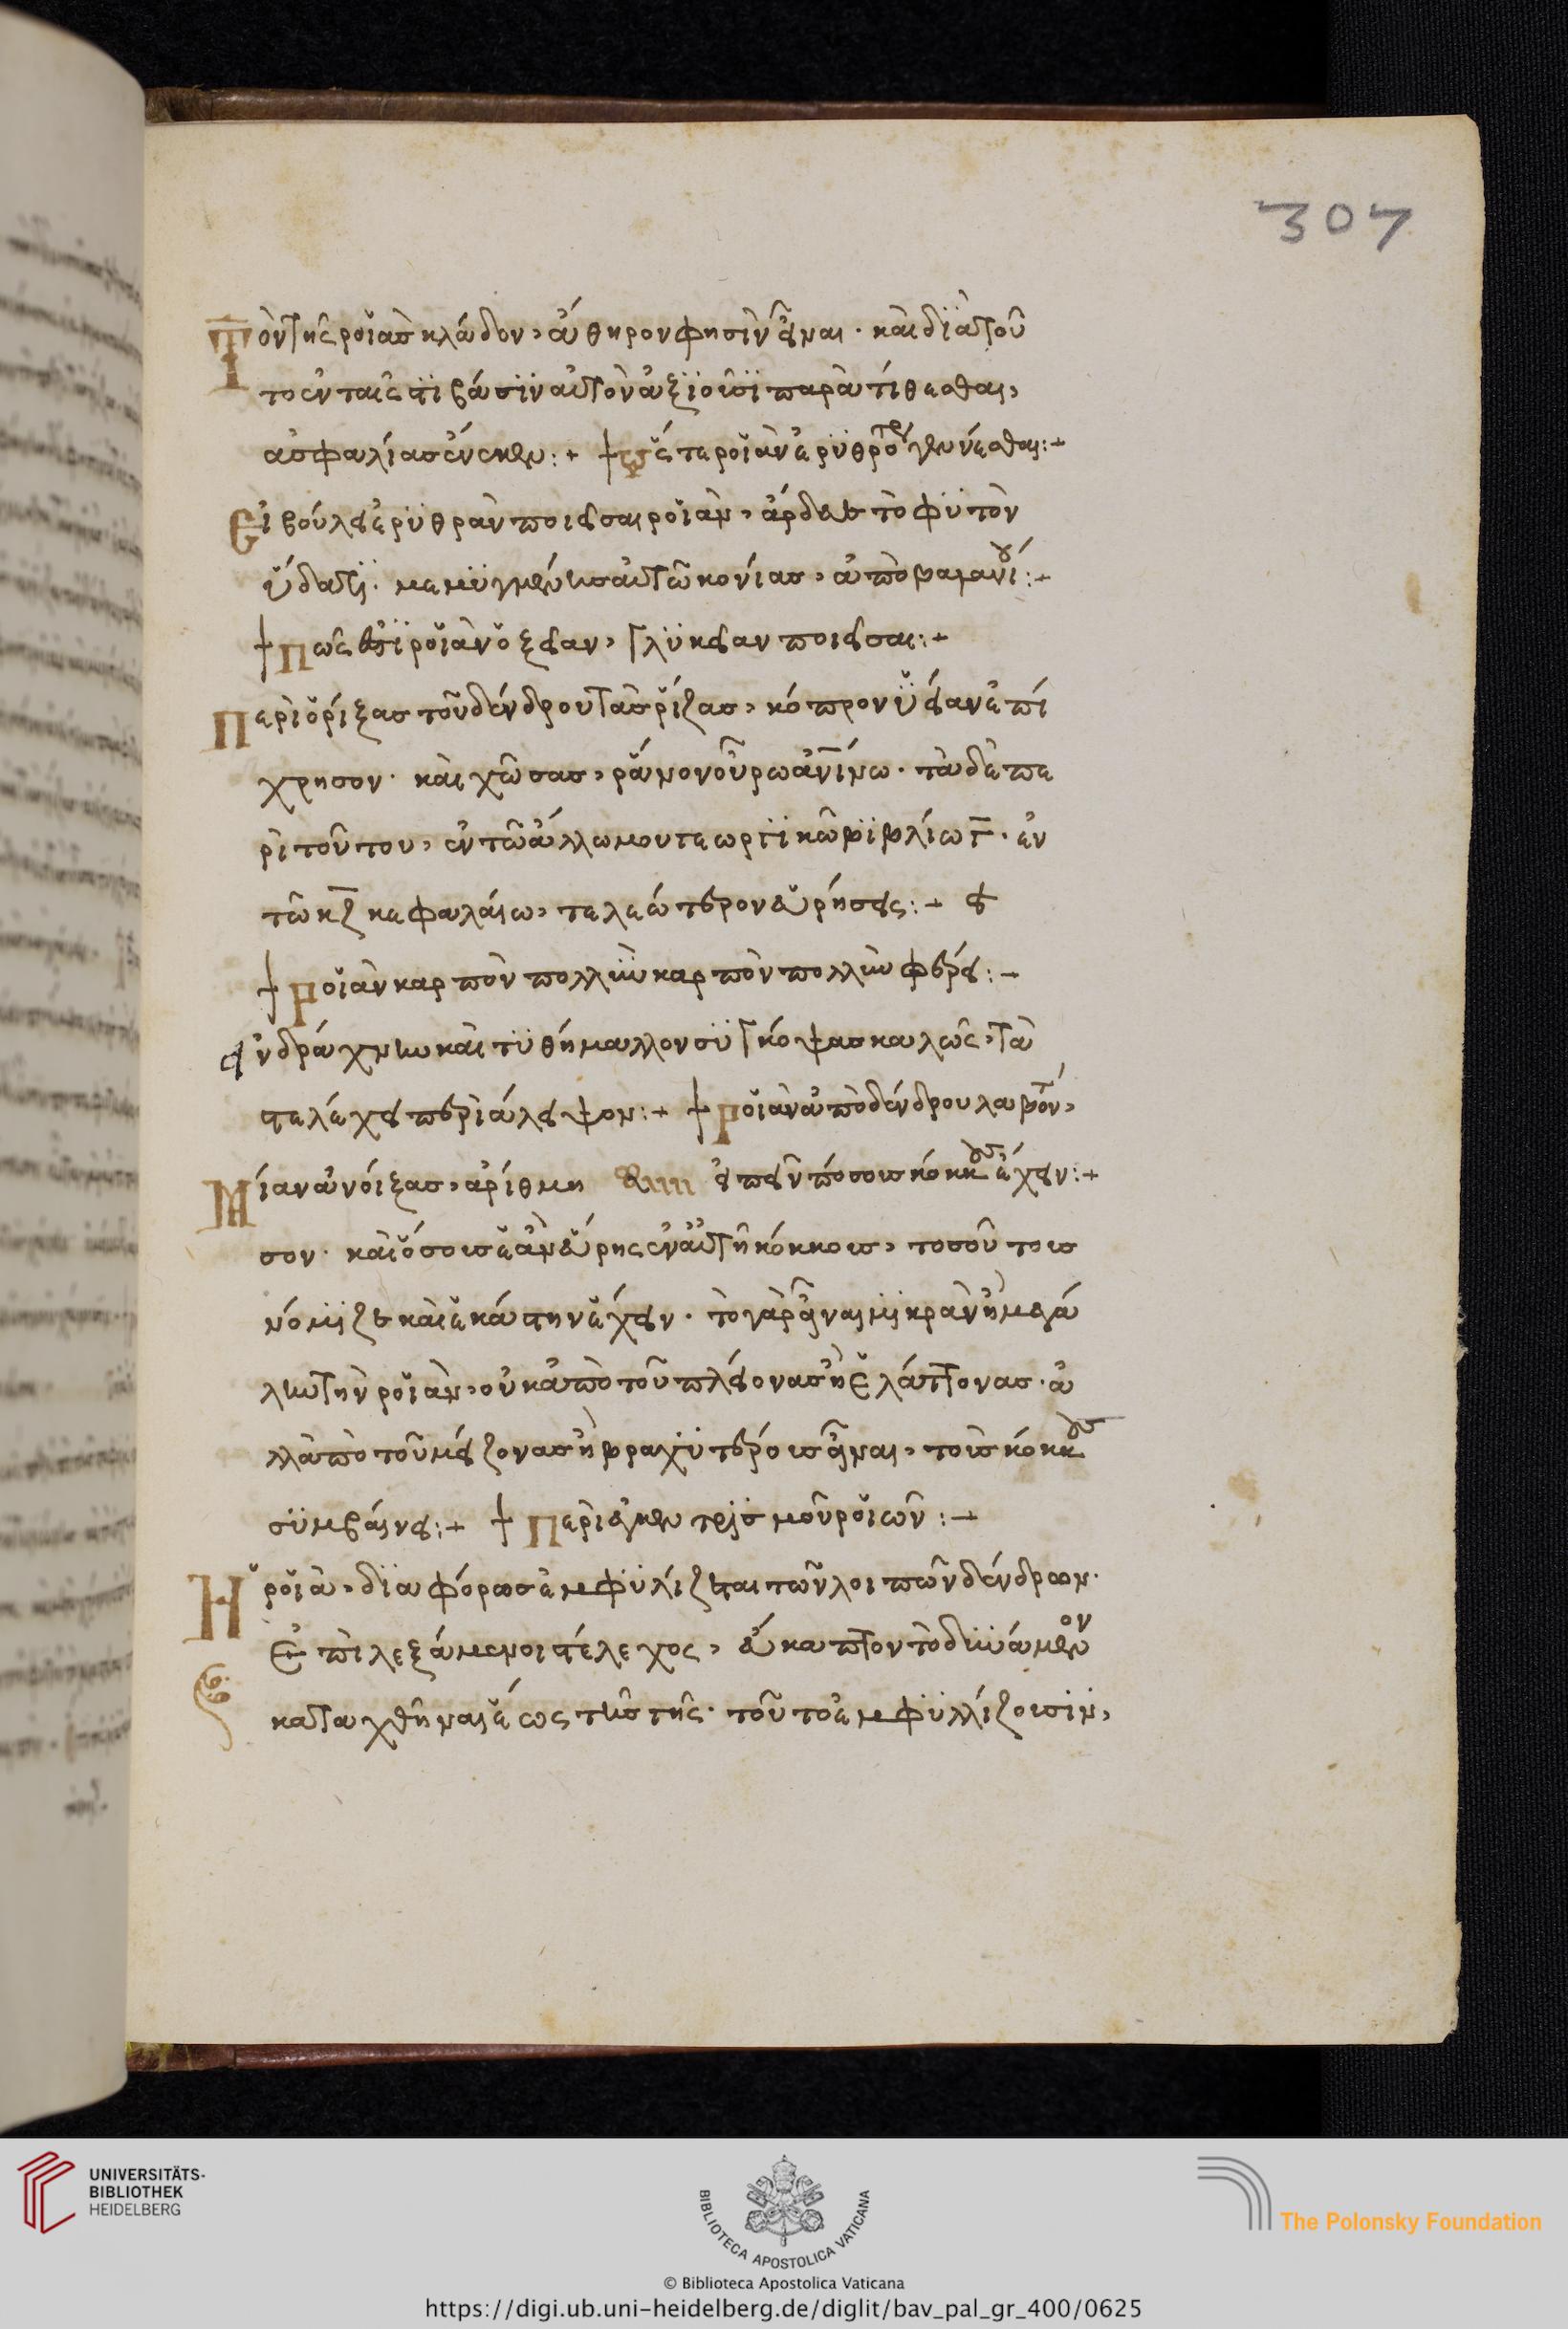 Τὸν τῆς ροϊὰς κλάδον, ἄθηρον φησὶν εἶναι· καὶ διατοῦ
το ἐν ταῖς στϊβάσϊν αὐτὸν ἀξϊοῦσϊ παρατίθεσθαι,
ἀσφαλίας ἕνεκεν:+ +ὥστε ροϊὰν ἐρϋθροτε γενέσθαι:+
Εἰ βούλει ἐρϋθρὰν ποιεῖσαι ροϊὰν, ἄρδευε τὸ φϋτὸν
ὕδατι. μεμϋγμένης αὐτῶ κονίας, ἀπο βαλανίου:+
+Πῶς ἐπῒ ροϊὰν ὀξεῖαν, γλϋκεῖαν ποιεῖσαι:+
Περὶορίξας τοῦ δένδρου τὰς ρίζας, κόπρον ϋείαν ἐπί
χρησον· καὶ χῶσας, ράνον οὔρω ἀνίνω· τὰ δὲ πε
ρὶ τοῦτου, ἐν τῶ ἄλλω μου γεωργϊκῶ βϊβλίω γ̅· ἐν
τῶ κζ̅ κεφαλάιω, τελεώτερον εὑρήσεις:+
+Ροϊὰν καρπὸν πολλὴν καρπὸν πολλὴν φέρει:+
Ἀνδράχνην καὶ τϋθήμαλλον σϋγκόψας καλῶς, τὰ
στελέχει περιάλειψον:+ +Ροϊὰν ἀπὸ δένδρου λαβόντ,
Μίαν ἀνοίξας, ἀρίθμη εἰπεῖν πόσους κόκκους ἔχειν:+
σον· καὶ ὅσους ἐὰν εὕρης ἐν αὐτῆ κόκκους, τοσοῦτους
νόμιζε καὶ ἑκάστην ἔχειν· τὸ γὰρ εἶναι μϊκρὰν ἢ μεγά
λην τὴν ροϊὰν, οὐκ ἀπὸ τοῦ πλείονας ἢ ἐλάττονας· ἀ
λλαπὸ τοῦ μείζονας ἢ βραχϋτέρους εἶναι, τοὺς κόκκους
σϋμβάινει:+ +Περὶ ἐγκεντρισμοῦ ροϊῶν:+
Ἡ ροϊὰ, δϊαφόρως ἐμφϋλίζεται τῶν λοιπῶν δένδρων·
Ἐπὶλεξάμενοι στέλεχος, εὔκαπτον τὸ δϋνάμενον
καταχθῆναι ἕως τῆς γῆς· τοῦτο ἐμφϋλλίζουσϊν,
307
UNIVERSITÄTS-
BIBLIOTHEK
HEIDELBERG
BIBLIOTECA APOSTOLICA VATICANA
The Polonsky Foundation
© Biblioteca Apostolica Vaticana
https://digi.ub.uni-heidelberg.de/diglit/bav_pal_gr_400/0625